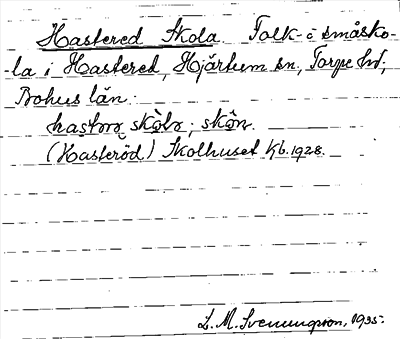 Hastered Skola. Folk- o småsko-
-la i Hastered, Hjärtum sn, Torpe hd,
Bohus län.
hastrǝ skɷla; skɷn.
(Hasteröd) Skolhuset kb. 1928.
L. M. Svenungsson, 1935.